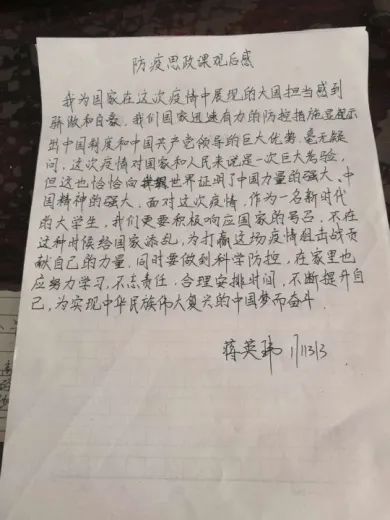 防疫思政课观后感
我为国家在这次疫情中展现的大国担当感到
骄傲和自豪，我们国家迅速有力的防控措施显示
出中国制度和中国共产党领导的巨大优势，毫无疑
问，这次疫情对国家和人民来说是一次巨大考验，
但这也恰恰向世界证明了中国力量的强大、中
国精神的强大。面对这次疫情，作为一名新时代
的大学生，我们更要积极响应国家的号召，不在
这种时候给国家添乱，为打赢这场疫情阻击战贡
献自己的力量，同时要做到科学防控，在家里也
应努力学习，不忘责任，合理安排时间，不断提升自
己，为实现中华民族伟大复兴的中国梦而奋斗。
蒋英玮